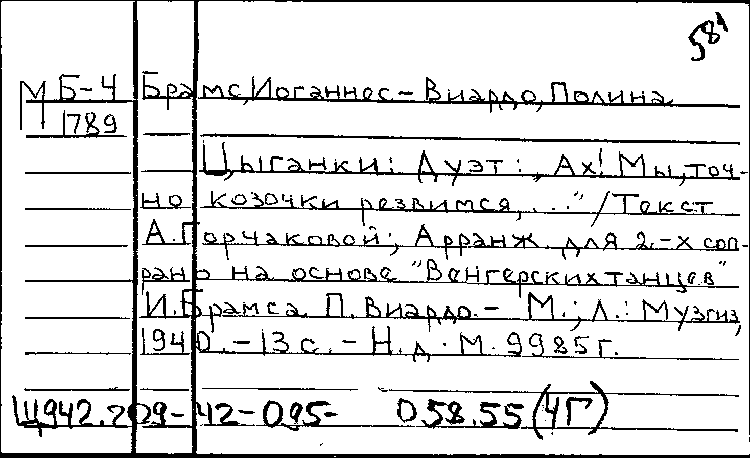 581
М Б-4 Брамс, Иоганнес - Виардо, Полина
1789
Цыганки: Дуэт: „Ах! Мы, точ-
но козочки резвимся, ..." / Текст
А. Горчаковой; Арранж. для 2-х соп-
рано на основе "Венгерских танцев"
И. Брамса П. Виардо. - М.; Л.: Музгиз,
1940. - 13 с. - Н.д. М. 9985 г.
Щ942.209-42-095- 058.55 (4Г)